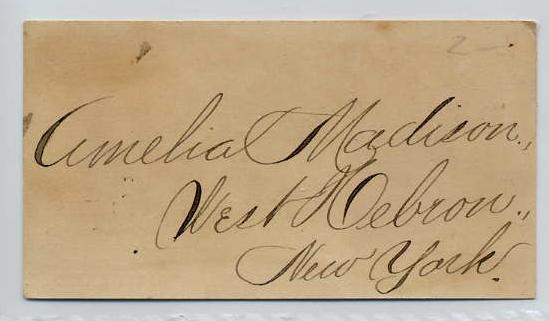 Amelia Madison.,
West Hebron.,
New York.
2